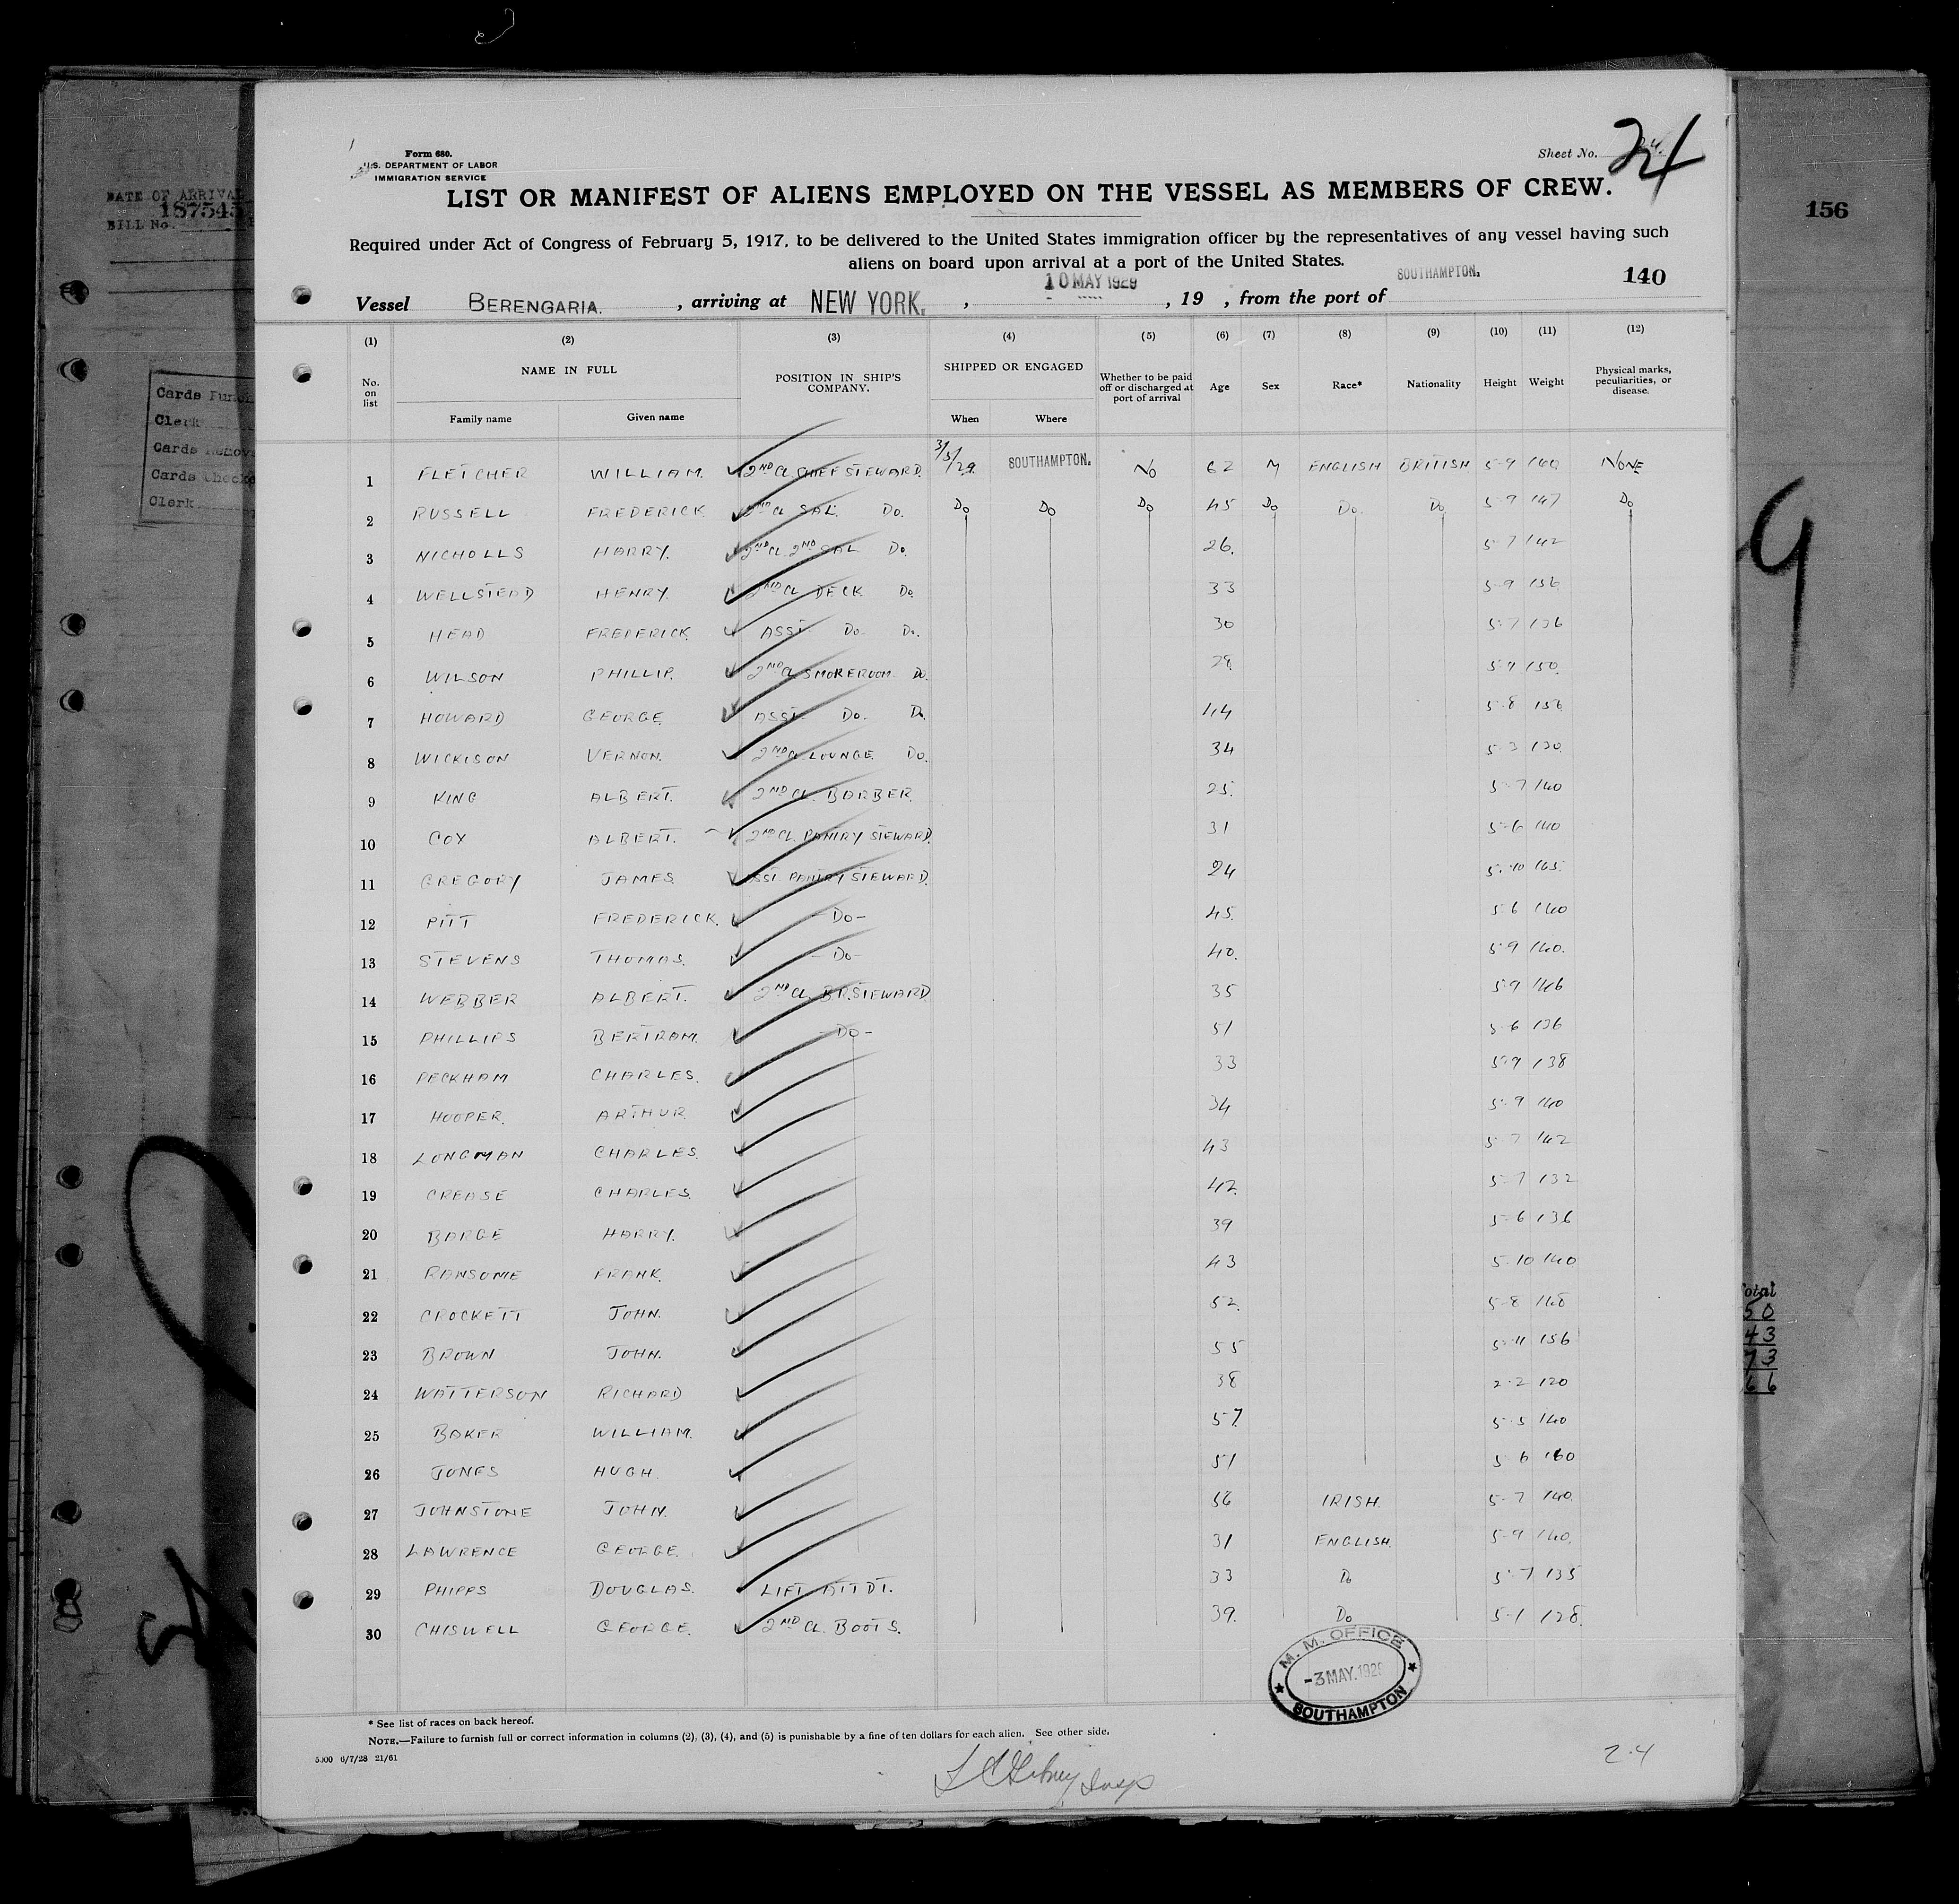 Form 680.
U.S. DEPARTMENT OF LABOR
IMMIGRATION SERVICE
Sheet No. 24
LIST OR MANIFEST OF ALIENS EMPLOYED ON THE VESSEL AS MEMBERS OF CREW.
Required under Act of Congress of February 5, 1917, to be delivered to the United States immigration officer by the representatives of any vessel having such
aliens on board upon arrival at a port of the United States.
140
Vessel BERENGARIA. , arriving at NEW YORK. , 10 MAY 1929 , 19 , from the port of SOUTHAMPTON.
(1) (2) (3) (4) (5) (6) (7) (8) (9) (10) (11) (12)
No. on list NAME IN FULL POSITION IN SHIP'S COMPANY. SHIPPED OR ENGAGED Whether to be paid off or discharged at port of arrival Age Sex Race* Nationality Height Weight Physical marks, peculiarities, or disease.
Family name Given name When Where
1 FLETCHER WILLIAM. 2ND CL. CHIEF STEWARD. 3/5/29. SOUTHAMPTON. NO 62 M ENGLISH BRITISH 5-9 160 NONE
2 RUSSELL FREDERICK 2ND CL SAL. DO. DO DO DO 45 DO DO. DO 5-9 147 DO
3 NICHOLLS HARRY. 2ND CL. 2ND SAL DO. 26. 5-7 142
4 WELLSTEAD HENRY. 2ND CL DECK DO. 33 5-9 156
5 HEAD FREDERICK. ASST DO. DO. 30 5-7 136
6 WILSON PHILLIP. 2ND CL SMOKEROOM DO. 28 5-9 150.
7 HOWARD GEORGE. ASST. DO. DO. 44 5-8 156
8 WICKISON VERNON. 2ND CL. LOUNGE. DO. 34 5-3 130.
9 KING ALBERT. 2ND CL. BARBER. 25. 5-7 140
10 COX ALBERT. 2ND CL. PANTRY STEWARD. 31 5-6 140
11 GREGORY JAMES. ASST. PANTRY STEWARD. 24 5-10 165.
12 PITT FREDERICK. -DO- 45. 5-6 140
13 STEVENS THOMAS. -DO- 40. 5-9 140.
14 WEBBER ALBERT. 2ND CL. BR. STEWARD 35 5-9 146
15 PHILLIPS BERTRAM. -DO- 51 5-6 136
16 PECKHAM CHARLES. 33 5-9 138
17 HOOPER. ARTHUR 34 5-9 140
18 LONGMAN CHARLES. 43 5-7 142
19 CREASE CHARLES. 42. 5-7 132
20 BARGE HARRY. 39 5-6 136
21 RANSOME FRANK. 43 5-10 140
22 CROCKETT JOHN. 52. 5-8 148
23 BROWN JOHN. 55 5-11 156
24 WATTERSON RICHARD 38 2-2 120
25 BAKER WILLIAM. 57. 5-5 140
26 JONES HUGH. 51 5-6 160
27 JOHNSTONE JOHN. 56 IRISH. 5-7 140.
28 LAWRENCE GEORGE. 31 ENGLISH. 5-9 140.
29 PHIPPS DOUGLAS. LIFT ATTDT. 33 DO 5-7 135
30 CHISWELL GEORGE. 2ND CL. BOOTS. 39. DO 5-1 128.
M. M. OFFICE
-3 MAY. 1929
SOUTHAMPTON
* See list of races on back hereof.
NOTE.—Failure to furnish full or correct information in columns (2), (3), (4), and (5) is punishable by a fine of ten dollars for each alien. See other side.
5000 6/7/28 21/61
Insp
2.4
DATE OF ARRIVAL
187545
BILL No.
Clerk
Cards Checked
Clerk
156
9
Total
50
43
73
66